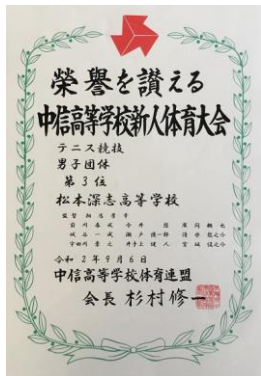 榮譽を讃える
中信高等学校新人体育大会
テニス競技
男子団体
第3位
松本深志高等学校
監督
令和2年9月6日
中信高等学校体育連盟
会長 杉村修一